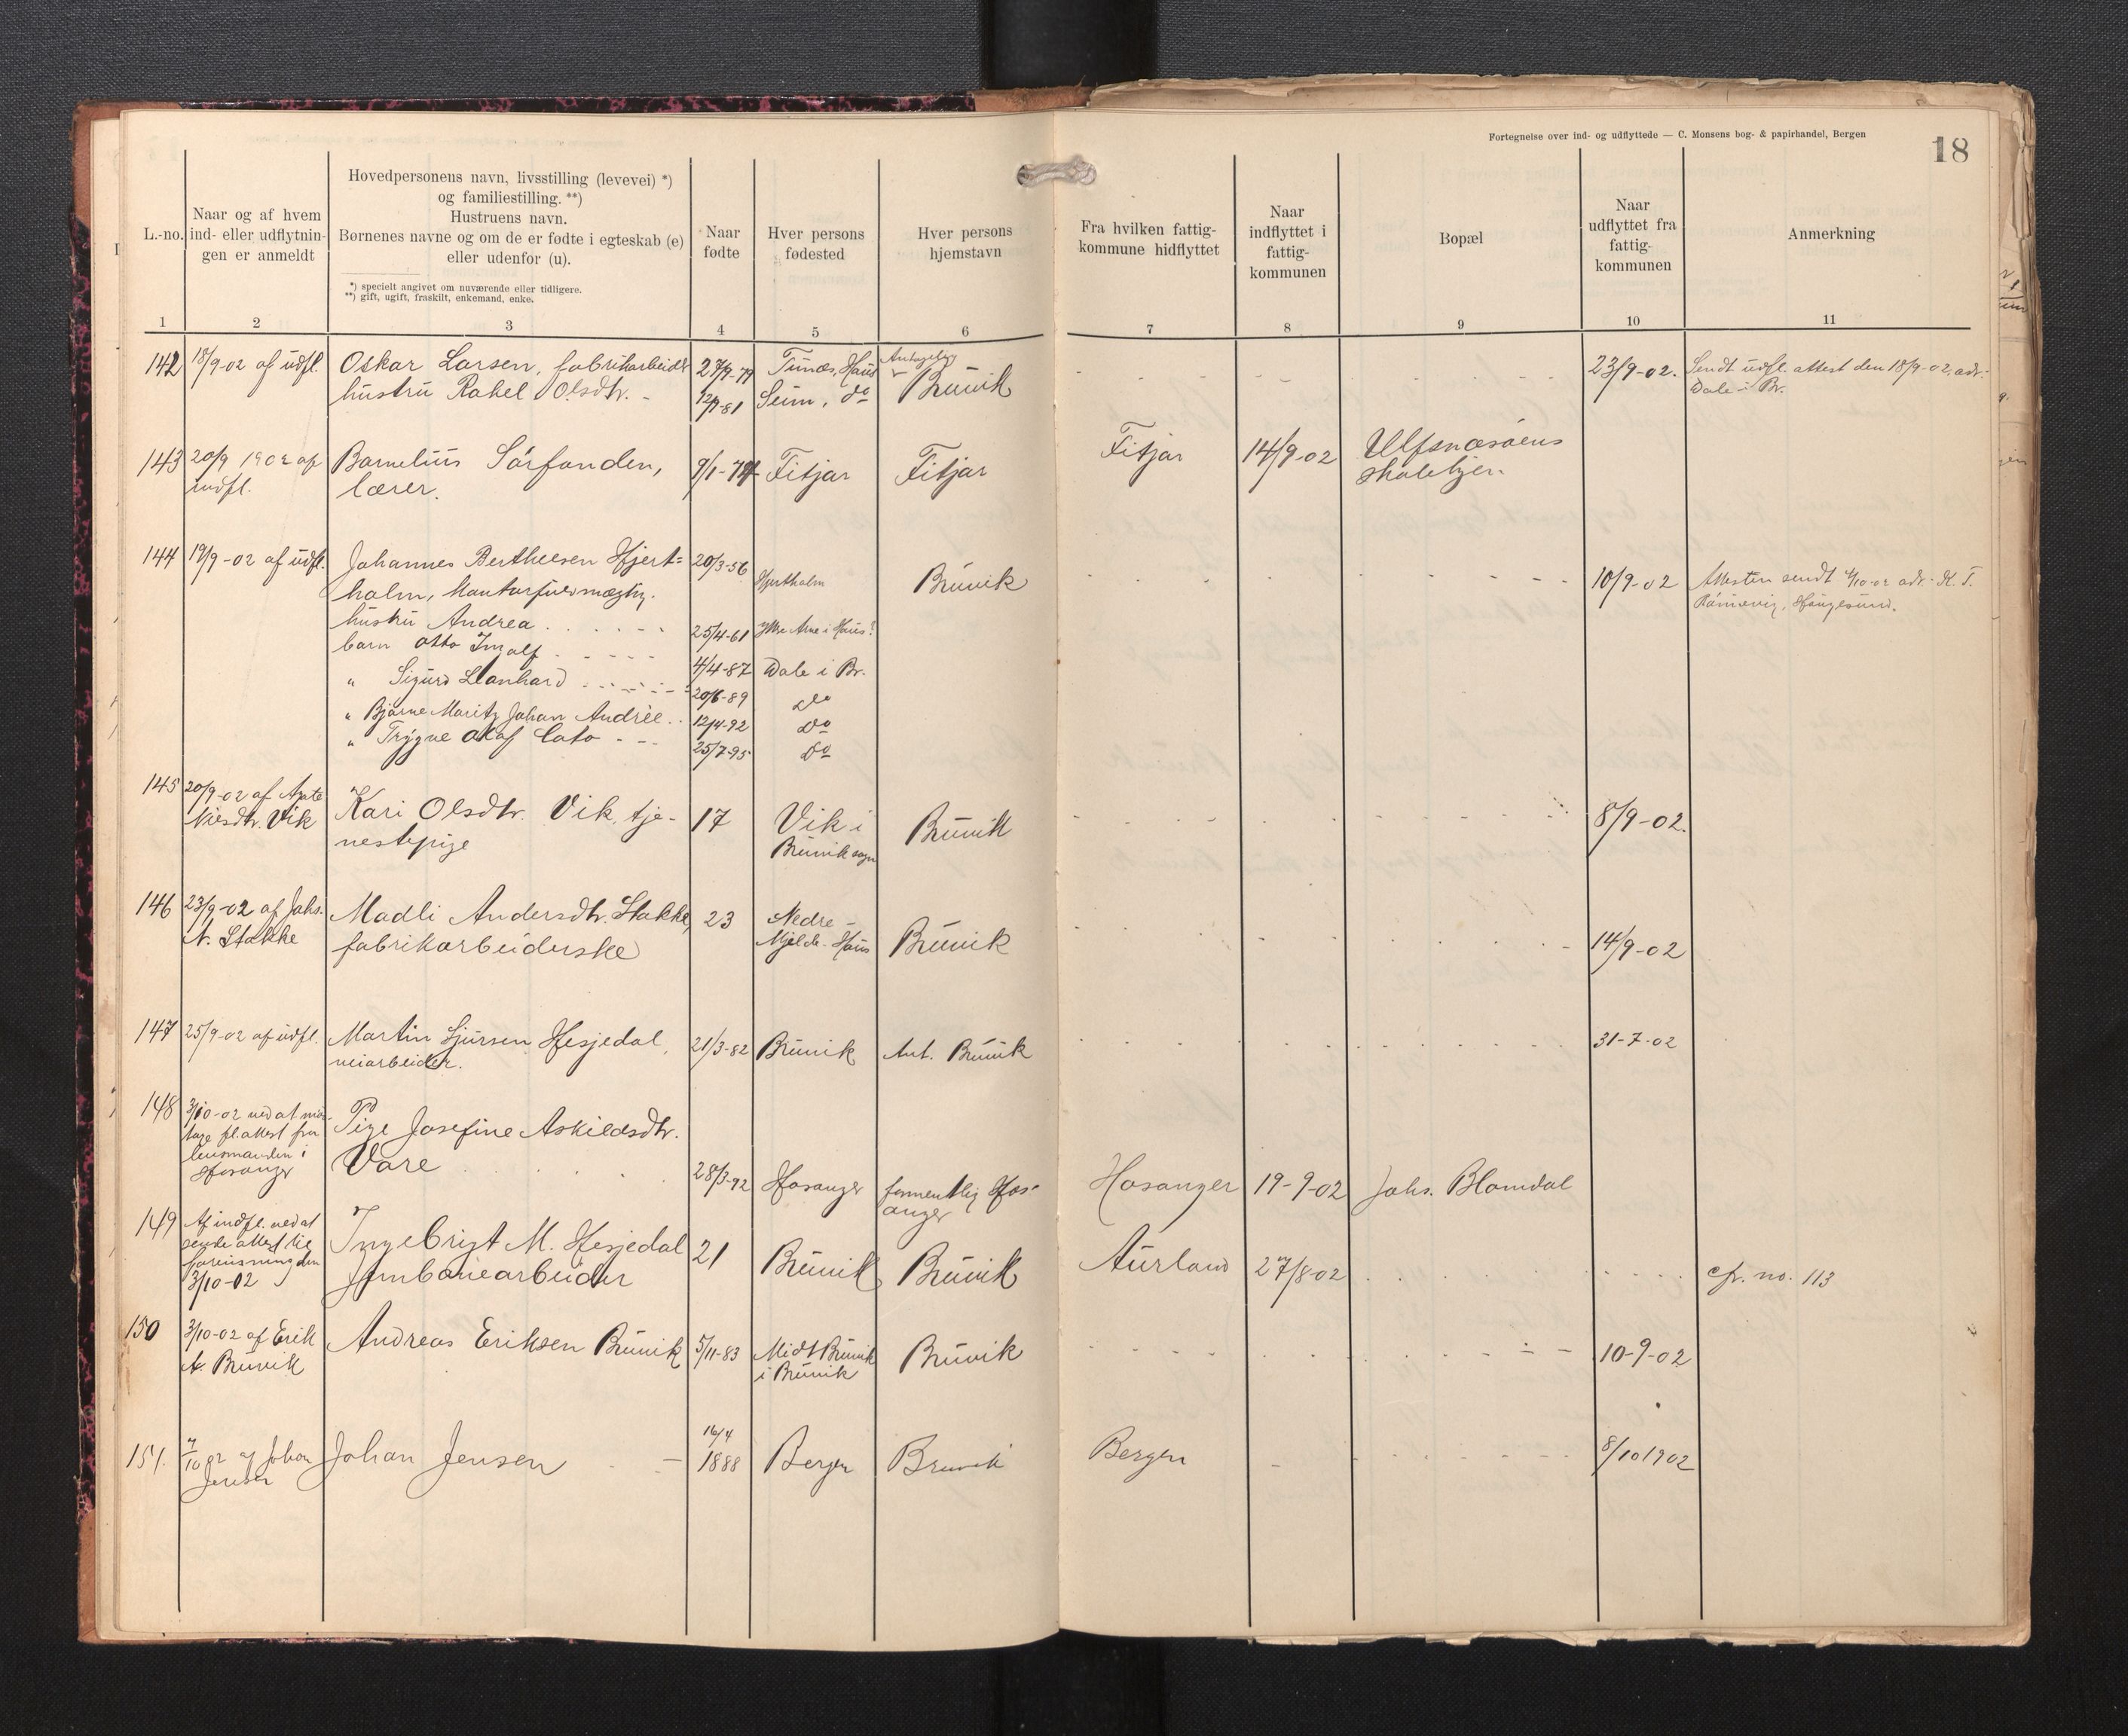 Fortegnelse over ind- og udflyttede — C. Monsens bog- & papirhandel, Bergen
18
L.-no.
Naar og af hvem
ind- eller udflytnin-
gen er anmeldt
Hovedpersonens navn, livsstilling (levevei) *)
og familiestilling. **)
Hustruens navn.
Børnenes navne og om de er fødte i egteskab (e)
eller udenfor (u).
*) specielt angivet om nuværende eller tidligere.
**) gift, ugift, fraskilt, enkemand, enke.
Naar
fødte
Hver persons
fødested
Hver persons
hjemstavn
Fra hvilken fattig-
kommune hidflyttet
Naar
indflyttet i
fattig-
kommunen
Bopæl
Naar
udflyttet fra
fattig-
kommunen
Anmerkning
1 2 3 4 5 6 7 8 9 10 11
142 18/9-02 af udfl. Oskar Larsen, fabrikarbeider 27/9-79 Tunæs, Haus Antagelig 23/9-02. Sendt udfl. attest den 18/9-02, adr:
hustru Rakel Olsdtr. 12/7-81 Seim, do Bruvik Dale i Br.
143 20/9 1902 af Barnelius Sörfonden, 9/1-74 Fitjar Fitjar Fitjar 14/9-02 Ulfsnæsöens
indfl. lærer. skolebjer.
144 19/9-02 af udfl. Johannes Berthelsen Hjert= 20/3-56 Hjertholm Bruvik 10/9-02 Attesten sendt 4/10-02 adr. K. T.
holm, Haugesund.
hustru Andrea 25/4-61 Ytre Arne i Haus?
barn Otto Ingolf 4/4-87 Dale i Br.
" Sigurd Leonhard 20/6-89 do
" Bjarne Moritz Johan Andrée 12/4-92 Do
" Trygve Olaf Cato 25/7-95 Do
145 20/9-02 af Agate Kari Olsdtr. Vik, tje- 17 Vik i Bruvik 8/9-02.
Nilsdtr. Vik nestepige Bruvik sogn
146 23/9-02 af Johs. Madli Andersdtr. Stokke, 23 Nedre Bruvik 14/9-02
N. Stokke fabrikarbeiderske Mjelde - Haus
147 25/9-02 af udfl. Martin Sjursen Hesjedal, 21/3-82 Bruvik Ant. Bruvik 31-7-02
veiarbeider.
148 3/10-02 ved at mod- Pige Josefine Askildsdtr.
tage fl.attest fra Vare 28/3-92 Hosanger formentlig Hos- Hosanger 19-9-02 Johs. Blomdal
lensmanden i anger
Hosanger
149 Af indfl. ved at Ingebrigt M. Hesjedal 21 Bruvik Bruvik Aurland 27/8-02 cfr. no. 113
sende attest til Jernbanearbeider
den
3/10-02
150 3/10-02 af Erik Andreas Eriksen Bruvik 5/11-83 Midt Bruvik Bruvik 10-9-02
A. Bruvik i Bruvik
151. 7/10 02 af Johan Johan Jensen 16/4 1888 Bergen Bruvik Bergen 8/10 1902
Jensen